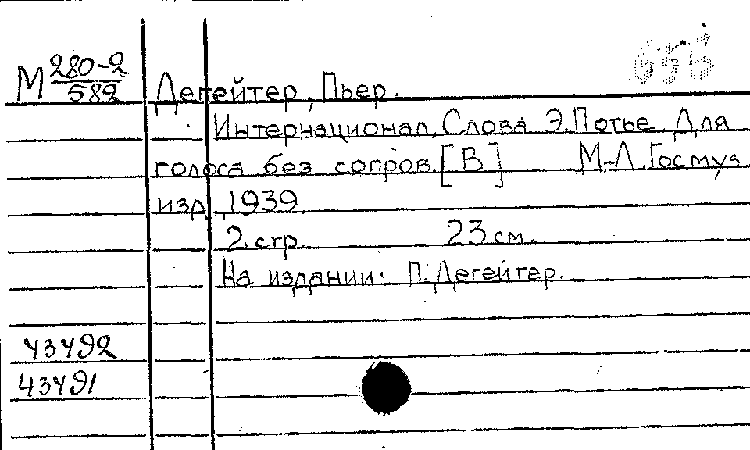 М 280-2/582
Дегейтер, Пьер.
Интернационал. Слова Э.Потье. Для
голоса без сопров. [В] М-Л. Госмуз
изд. 1939
2 стр. 23 см.
На издании: П. Дегейтер.
43492
43491